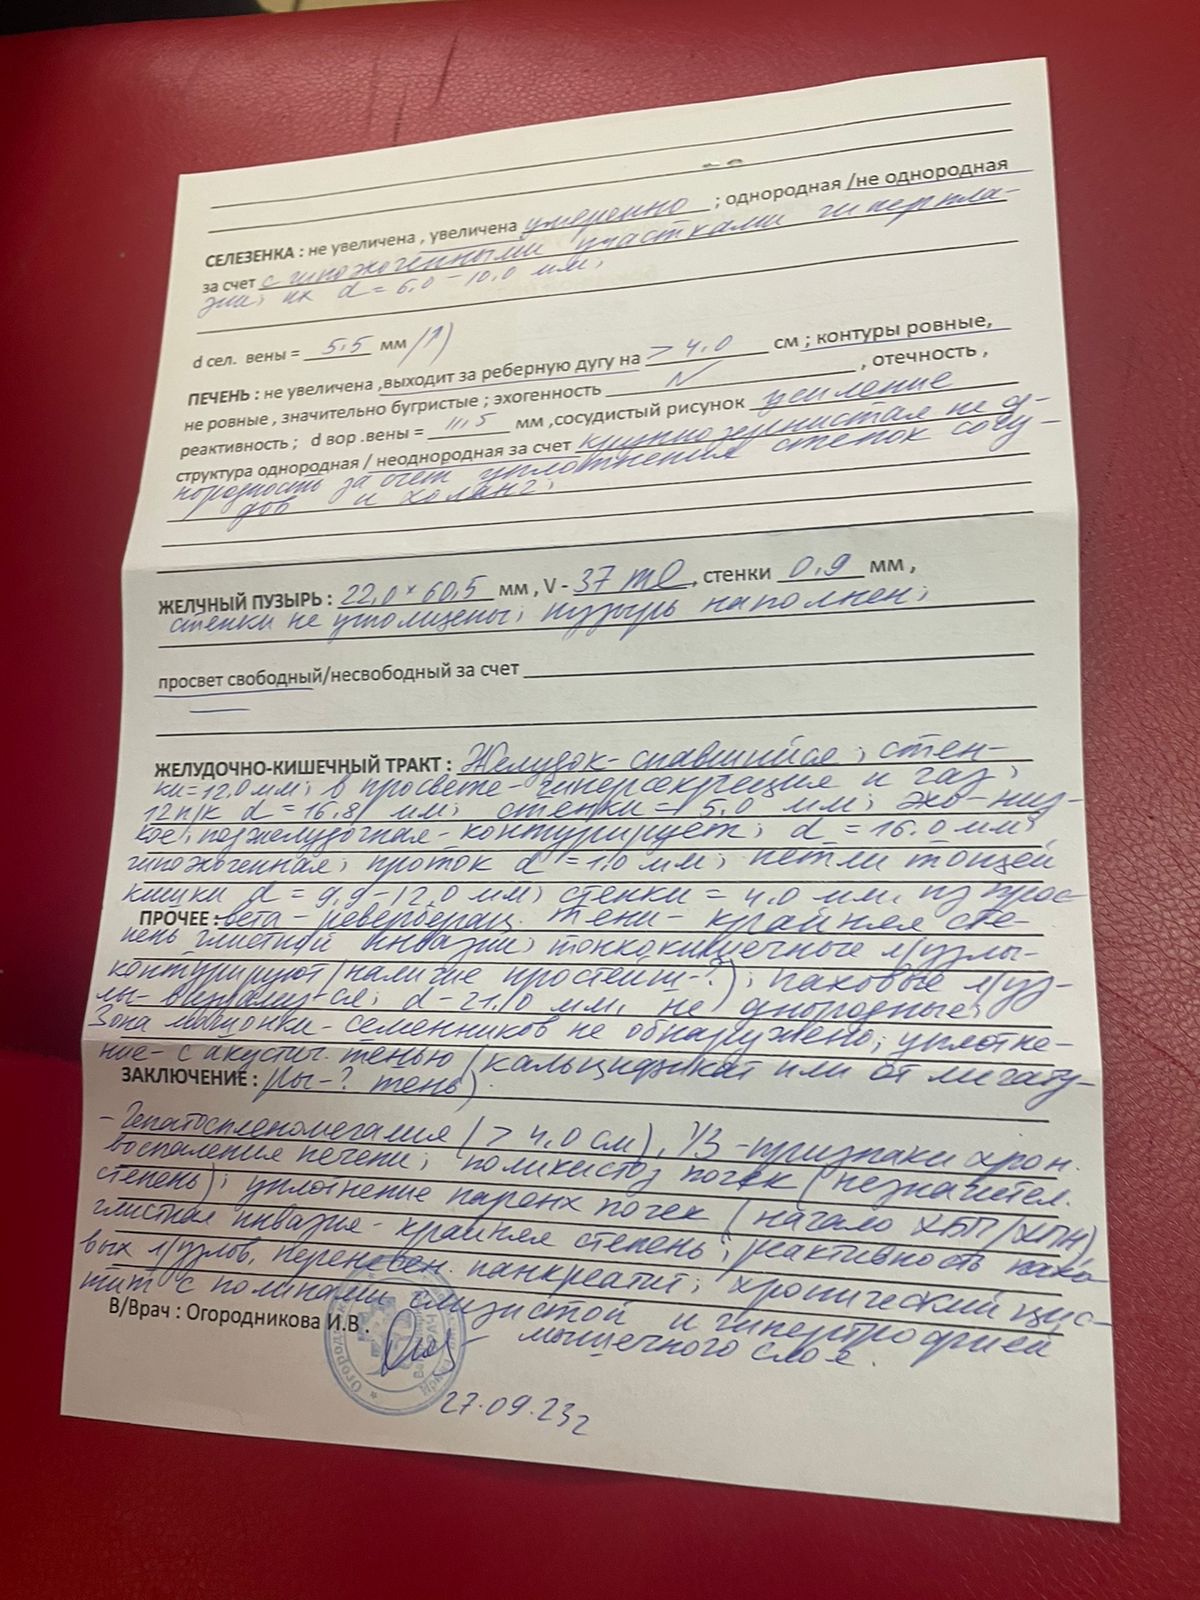 СЕЛЕЗЕНКА : не увеличена , увеличена умеренно ; однородная /не однородная
за счет с гипоэхогенными участками гиперпла-
зии; их d = 6,0 - 10,0 мм;
d сел. вены = 5,5 мм (↑)
ПЕЧЕНЬ : не увеличена ,выходит за реберную дугу на > 4,0 см ; контуры ровные,
не ровные , значительно бугристые ; эхогенность N , отечность ,
реактивность ; d вор .вены = 11,5 мм ,сосудистый рисунок усиление
структура однородная / неоднородная за счет крупнозернистая не од-
нородность за счет уплотнения стенок сосу-
дов и холанг;
ЖЕЛЧНЫЙ ПУЗЫРЬ : 22,0 × 60,5 мм , V - 37 ml , стенки 0,9 мм ,
стенки не утолщены; пузырь наполнен;
просвет свободный/несвободный за счет
ЖЕЛУДОЧНО-КИШЕЧНЫЙ ТРАКТ : Желудок- спавшийся; стен-
ки=12,0 мм; в просвете- гиперсекреция и газ;
12п/к d = 16,8 мм; стенки = 5,0 мм; эхо-низ-
кое; поджелудочная- контурирует; d = 16,0 мм;
гипоэхогенная; проток d = 1,0 мм; петли тощей
кишки d = 9,9-12,0 мм; стенки = 4,0 мм, из прос-
ПРОЧЕЕ : вета - ревербац. тени- крайняя сте-
пень глистной инвазии; тонкокишечные л/узлы-
контурируют (наличие простейш-?); паховые л/уз-
лы- визуализ-ся; d - 21,0 мм, не однородные;
Зона мошонки- семенников не обнаружено; уплотне-
ние- с акустич. тенью (кальцификат или от лигату-
ЗАКЛЮЧЕНИЕ : ры-? тень).
- Гепатоспленомегалия (> 4,0 см), УЗ-признаки хрон.
воспаления печени; поликистоз почек (незначител.
степень); уплотнение паренх почек (начало ХБП/ХПН)
глистная инвазия- крайняя степень; реактивность пахо-
вых л/узлов, панкреатит; хронический цис-
тит с полипами слизистой и гипертрофией
В/Врач : Огородникова И.В . мышечного слоя.
27.09.23г